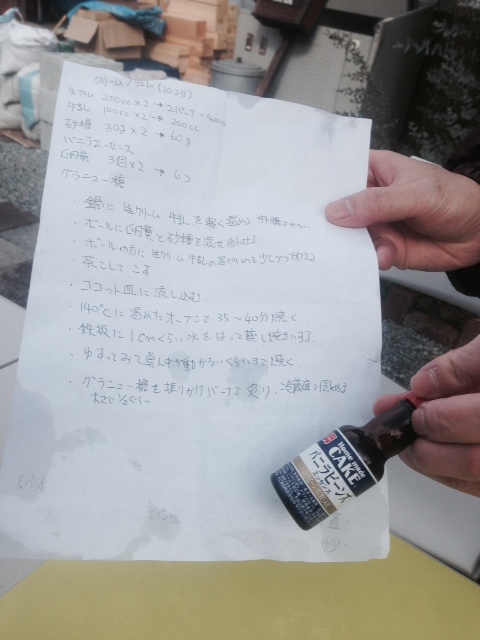 クリームブリュレ(10コ分)
生クリーム 200cc×2 → 2パック=400cc
牛乳 100cc×2 → 200cc
砂糖 30g×2 → 60g
バニラエッセンス
卵黄 3個×2 → 6コ
グラニュー糖
・鍋に生クリーム、牛乳を軽く温める
・ボールに卵黄と砂糖を混ぜ合わせる
・ボールの方に生クリーム牛乳の温めたものを少しづつ加える
・茶こしでこす
・ココット皿に流し込む.
・140℃に温めたオーブンで35~40分焼く
・鉄板に1cmくらい水をはって蒸し焼きにする.
・ゆすってみて真ん中が動かないくらいまで焼く.
・グラニュー糖を振りかけバーナーで炙り、冷蔵庫で固める
大さじ1/2ぐらい
Home made
CAKE
バニラビーンズ
エッセンス